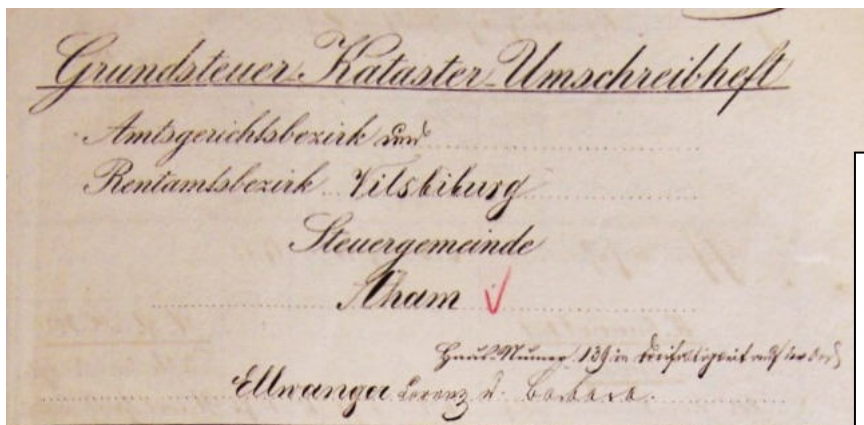 Grundsteuer-Kataster-Umschreibheft
Amtsgerichtsbezirk und
Rentamtsbezirk Vilsbiburg
Steuergemeinde
Aham
Haus-Numer 139 in Dreifaltigkeit auf der Öd
Ellwanger Lorenz u. Barbara.